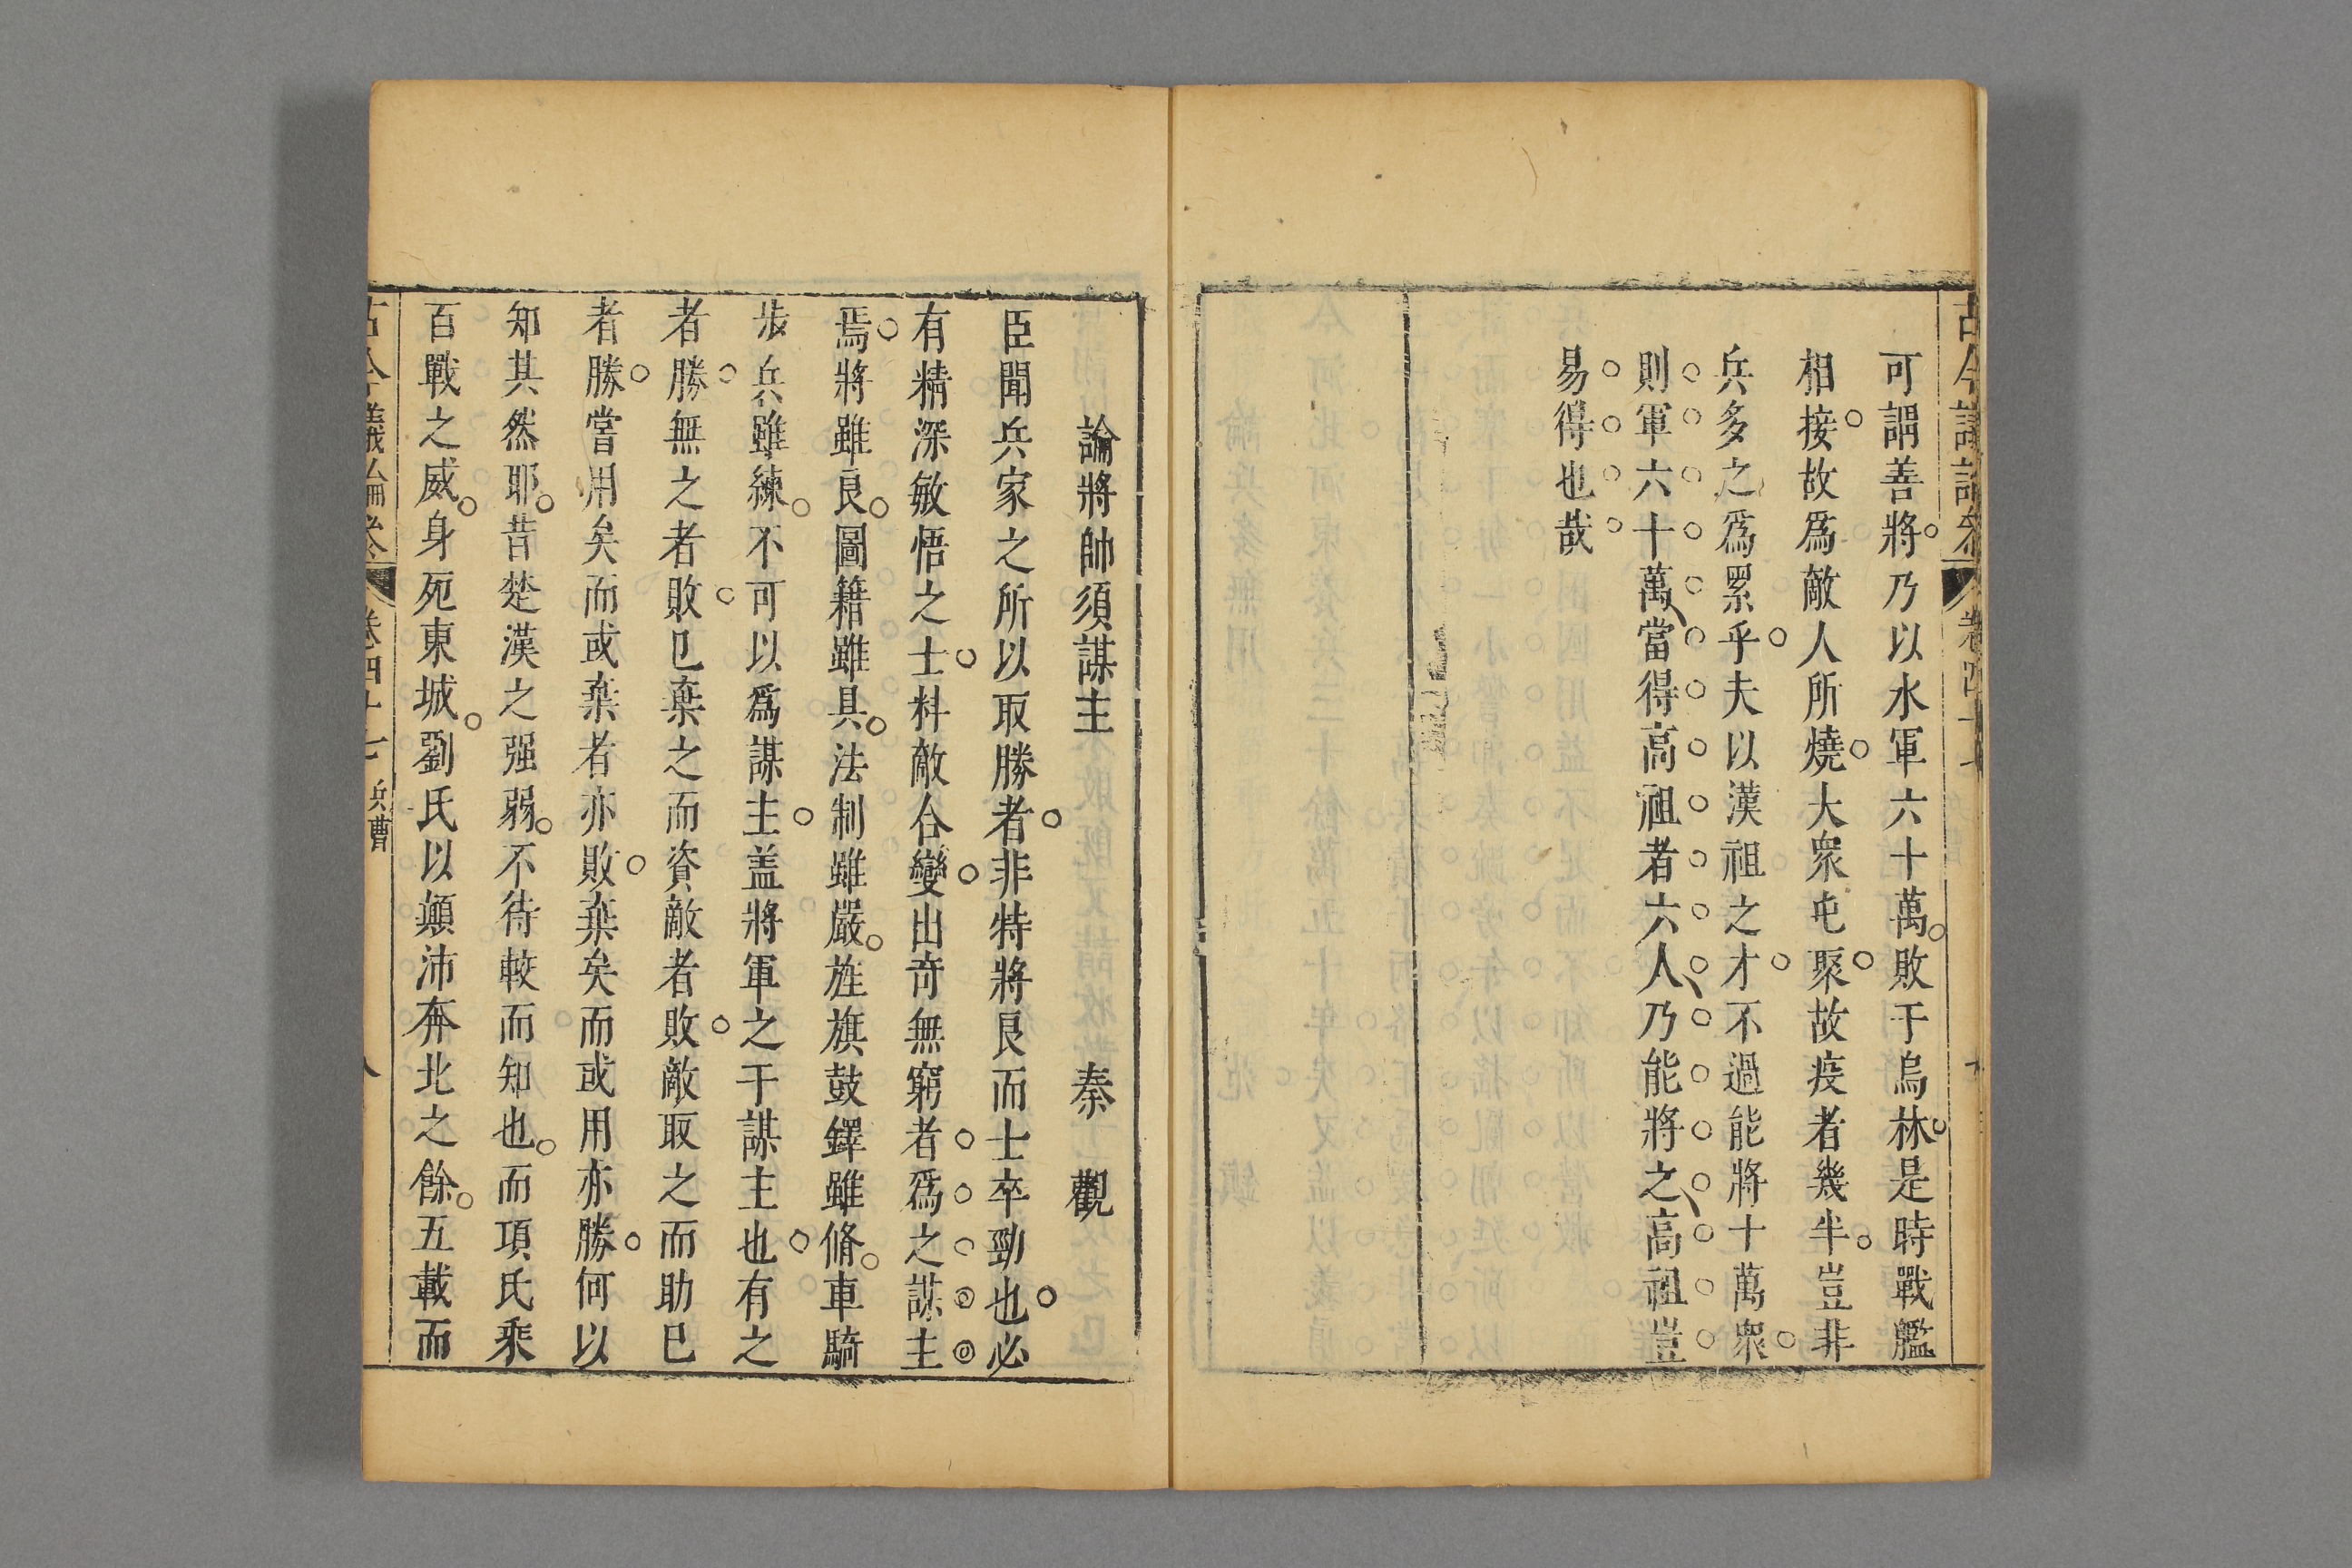 可謂善將乃以水軍六十萬敗于烏林是時戰艦
相接故爲敵人所燒大衆屯聚故疫者幾半豈非
兵多之爲累乎夫以漢祖之才不過能將十萬衆
則軍六十萬當得高祖者六人乃能將之高祖豈
易得也哉
論將帥須謀主 秦觀
臣聞兵家之所以取勝者非特將良而士卒勁也必
有精深敏悟之士料敵合變出奇無窮者爲之謀主
焉將雖良圖籍雖具法制雖嚴旌旗鼓鐸雖脩車騎
步兵雖練不可以爲謀主盖將軍之于謀主也有之
者勝無之者敗已棄之而資敵者敗敵取之而助已
者勝嘗用矣而或棄者亦敗棄矣而或用亦勝何以
知其然耶昔楚漢之强弱不待較而知也而項氏乘
百戰之威身死東城劉氏以顛沛奔北之餘五載而
古今議論參 卷四十七 兵曹 八